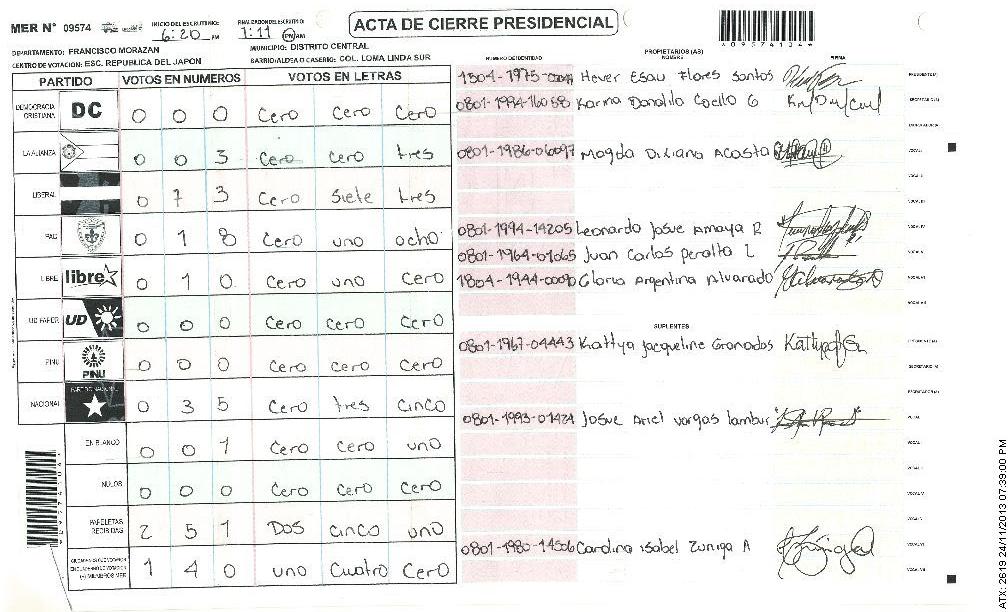 MER N° 09574
INICIO DEL ESCRUTINIO: 6:20 PM
FINALIZACION DEL ESCRUTINIO: 1:11 PM/AM
ACTA DE CIERRE PRESIDENCIAL
*09574104*
DEPARTAMENTO: FRANCISCO MORAZAN
MUNICIPIO: DISTRITO CENTRAL
CENTRO DE VOTACION: ESC. REPUBLICA DEL JAPON
BARRIO/ALDEA O CASERIO: COL. LOMA LINDA SUR
PARTIDO VOTOS EN NUMEROS VOTOS EN LETRAS
DEMOCRACIA CRISTIANA DC 0 0 0 Cero Cero Cero
LA ALIANZA 0 0 3 Cero Cero tres
LIBERAL 0 7 3 Cero Siete tres
PAC 0 1 8 Cero uno ocho
LIBRE libre 0 1 0 Cero uno Cero
UD FAPER UD 0 0 0 Cero Cero Cero
PINU PINU 0 0 0 Cero Cero Cero
NACIONAL PARTIDO NACIONAL 0 3 5 Cero tres Cinco
EN BLANCO 0 0 1 Cero Cero uno
NULOS 0 0 0 Cero Cero Cero
PAPELETAS RECIBIDAS 2 5 1 Dos Cinco uno
1 4 0 uno Cuatro Cero
NUMERO DE IDENTIDAD PROPIETARIOS (AS) NOMBRE FIRMA
Hever Esau Flores Santos PRESIDENTE(A)
0801-1994-16058 Karina Danalila Coello G SECRETARIO(A)
0801-1986-06097 Magda Diliana Acosta VOCAL I
VOCAL II
VOCAL III
0801-1994-14205 Leonardo Josue Amaya R VOCAL IV
0801-1964-01065 Juan Carlos Peralta L VOCAL V
1804-1944-00090 Gloria Argentina Alvarado VOCAL VI
VOCAL VII
SUPLENTES
0801-1967-04443 Kattya Jacqueline Granados PRESIDENTE(A)
SECRETARIO(A)
ESCRUTADOR(A)
0801-1993-01424 Josue Ariel vargas lambur VOCAL I
0801-1980-14506 Carolina Isabel Zuniga A VOCAL VI
VOCAL VII
ATX: 2619 24/11/2013 07:39:00 PM